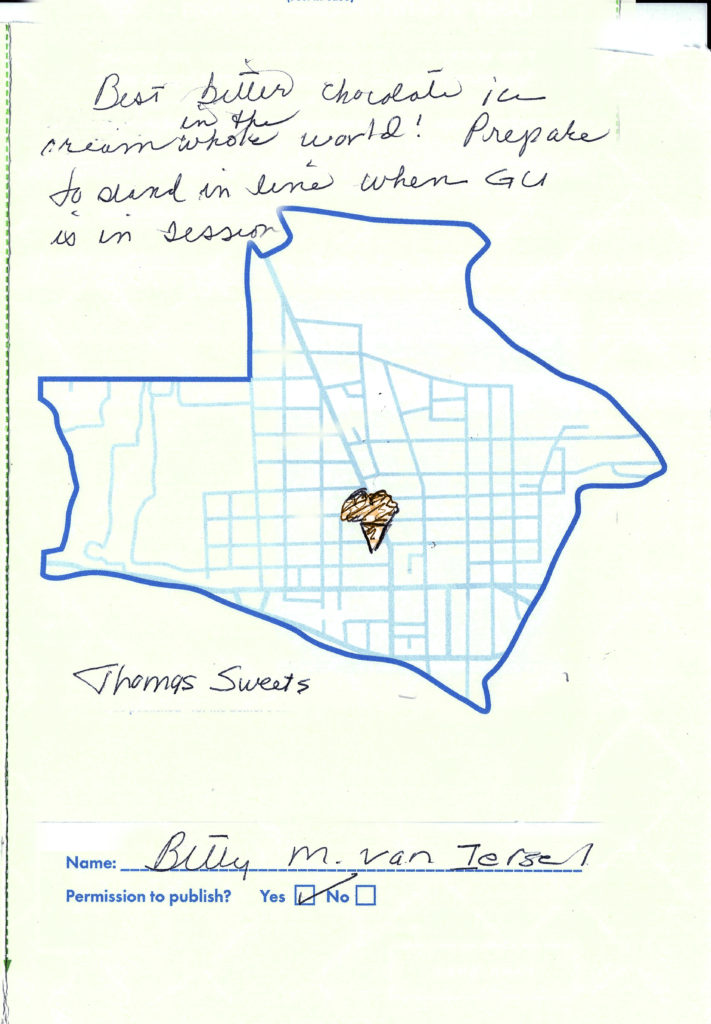 Best bitter chocolate ice
in the
cream whole world! Prepare
to stand in line when GU
is in session
Thomas Sweets
Name: Betty M. van Iersel
Permission to publish? Yes No